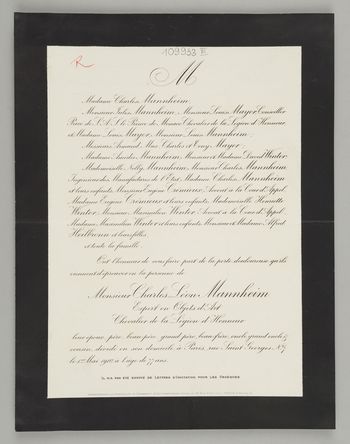 R
109933 III
M
Madame Charles Mannheim,
Monsieur Jules Mannheim, Monsieur Louis Mayer, Conseiller
Privé de S.A.S. le Prince de Monaco, Chevalier de la Légion d'Honneur,
et Madame Louis Mayer, Monsieur Louis Mannheim,
Messieurs Armand, Max, Charles et Mayer,
Madame Amédée Mannheim, Monsieur et Madame David Winter,
Mademoiselle Nelly Mannheim, Monsieur Charles Mannheim,
Ingénieur des Manufactures de l'État, Madame Charles Mannheim
et leurs enfants, Monsieur Eugène Crémieux, Avocat à la Cour d'Appel,
Madame Eugène Crémieux et leurs enfants, Mademoiselle Henriette
Winter, Monsieur Maximilien Winter, Avocat à la Cour d'Appel,
Madame Maximilien Winter et leurs enfants, Monsieur et Madame Alfred
Heilbronn et leurs filles,
et toute la famille
Ont l'honneur de vous faire part de la perte douloureuse qu'ils
viennent d'éprouver en la personne de
Monsieur Charles Léon Mannheim
Expert en Objets d'Art
Chevalier de la Légion d'Honneur
leur époux, père, beau-père, grand-père, beau-frère, oncle, grand-oncle &
cousin, décédé en son domicile à Paris, rue Saint Georges, Nº 7,
le 1er Mai 1910, à l'âge de 77 ans.
IL N'A PAS ÉTÉ ENVOYÉ DE LETTRES D'INVITATION POUR LES OBSÈQUES